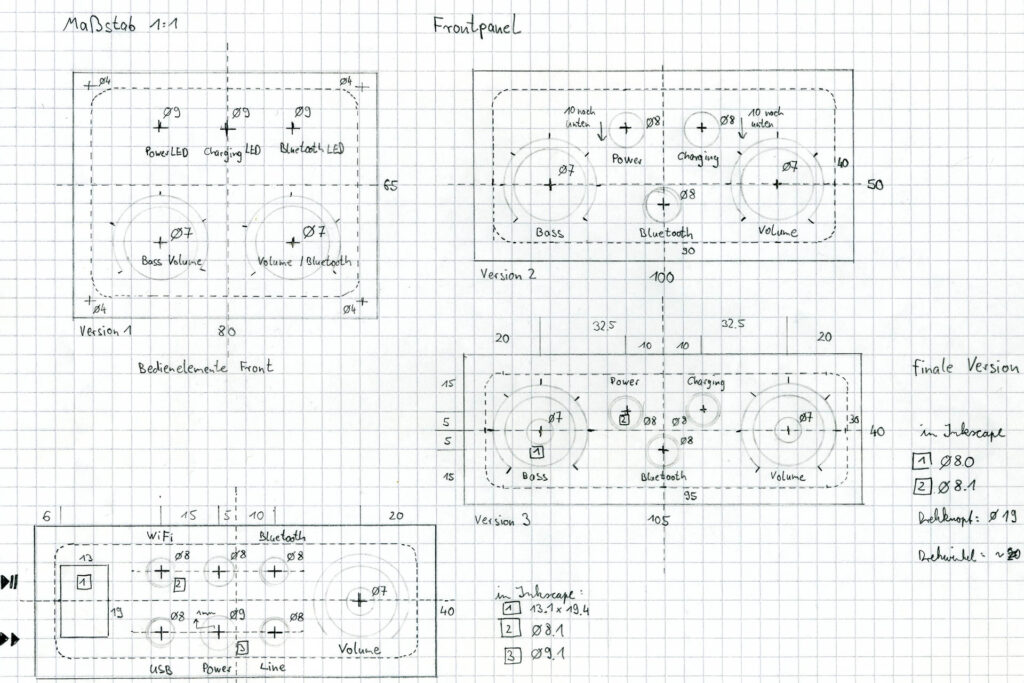 Maßstab 1:1
Frontpanel
Ø4
Ø4
Ø9
Ø9
Ø9
Power LED
Charging LED
Bluetooth LED
65
Ø7
Ø7
Bass Volume
Volume / Bluetooth
Ø4
Ø4
Version 1
80
Bedienelemente Front
10 nach
unten
Ø8
Ø8
10 nach
unten
Power
Charging
Ø7
Ø7
40
50
Ø8
Bass
Bluetooth
Volume
90
Version 2
100
32.5
32.5
20
20
10
10
15
5
5
15
Power
Charging
Ø7
2
Ø8
Ø8
Ø7
Ø8
1
30
40
Bass
Bluetooth
Volume
95
Version 3
105
Finale Version
in Inkscape
1 Ø8.0
2 Ø8.1
Drehknopf: Ø 19
Drehwinkel: ~20
6
15
5
10
20
WiFi
Bluetooth
13
1
19
Ø8
Ø8
Ø8
2
Ø7
40
Ø8
1mm
Ø9
Ø8
3
USB
Power
Line
Volume
in Inkscape:
1 13.1 x 19.4
2 Ø8.1
3 Ø9.1